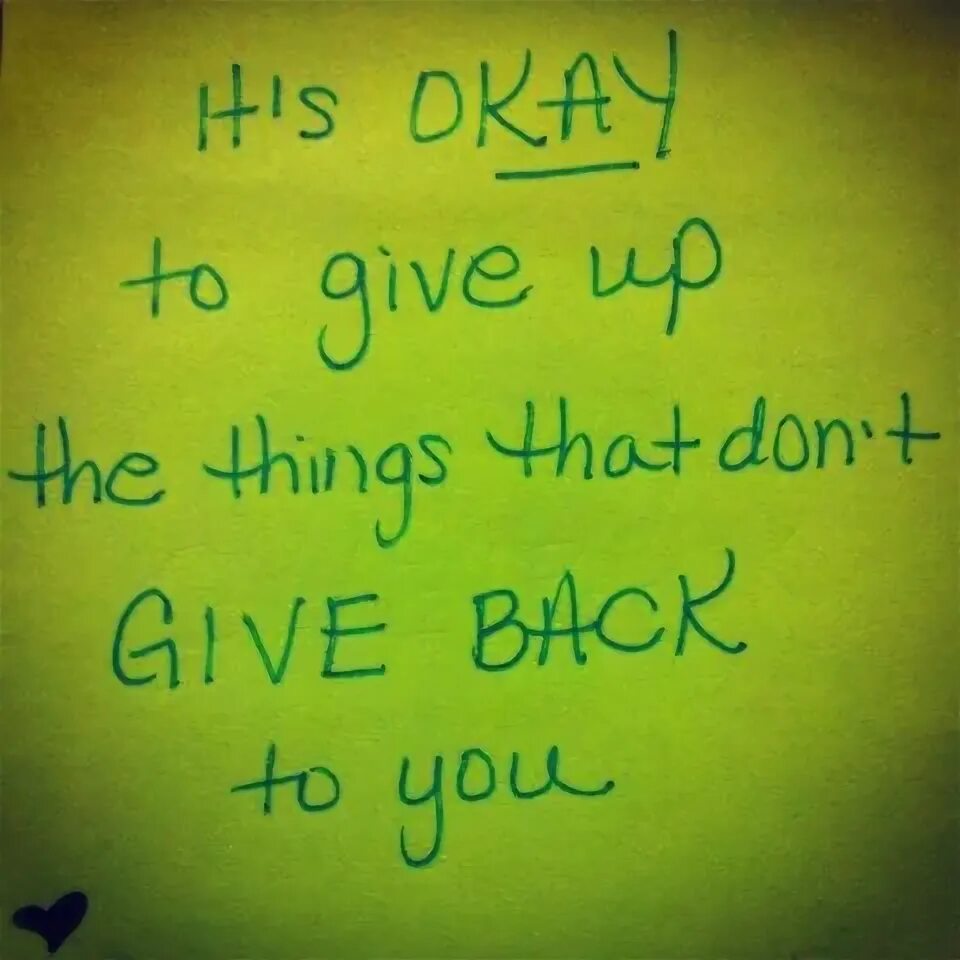 It's OKAY
to give up
the things that don't
GIVE BACK
to you